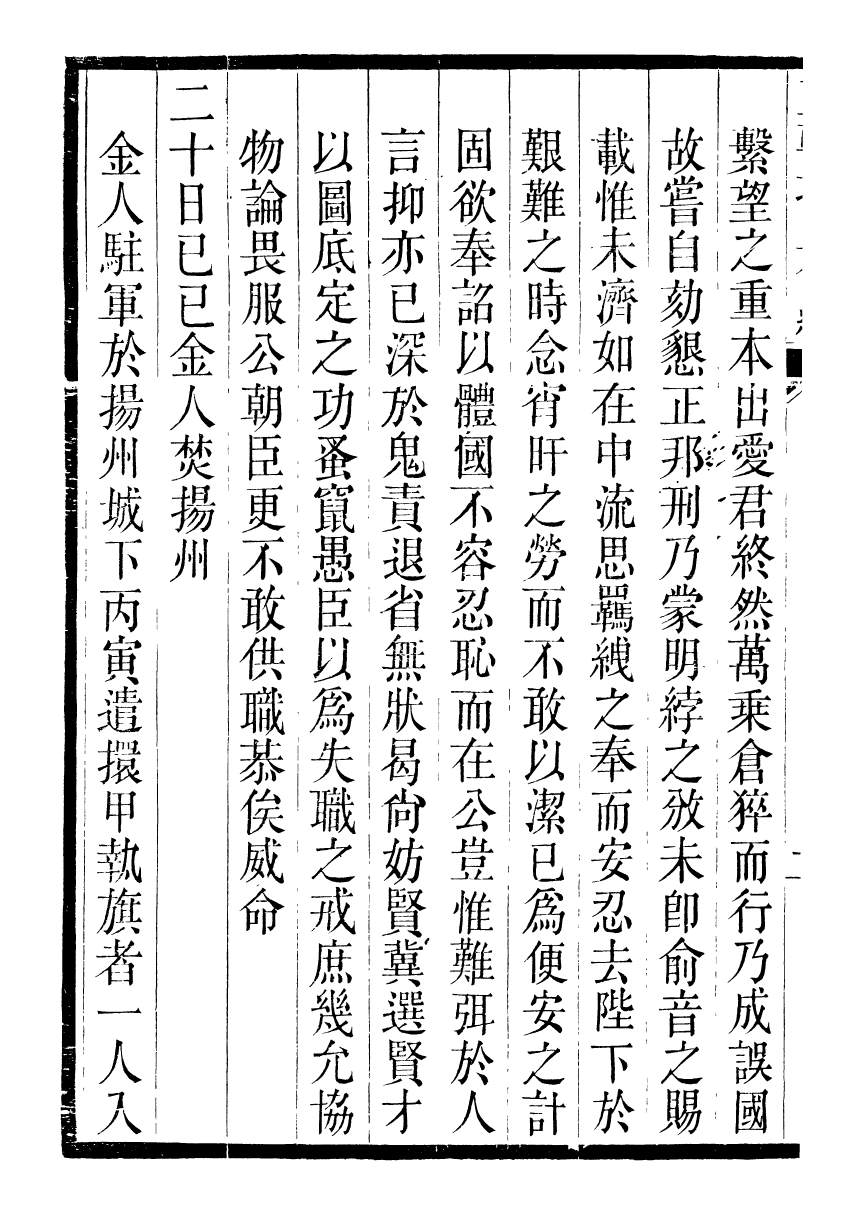 繫望之重本出愛君終然萬乗倉猝而行乃成誤國
故嘗自劾懇正邦刑乃蒙明綍之攽未卽俞音之賜
載惟未濟如在中流思羈絏之奉而安忍去陛下於
艱難之時念宵旰之勞而不敢以潔已爲便安之計
固欲奉詔以體國不容忍恥而在公豈惟難弭於人
言抑亦已深於鬼責退省無狀曷尙妨賢冀選賢才
以圖底定之功蚤竄愚臣以爲失職之戒庶幾允協
物論畏服公朝臣更不敢供職恭俟威命
二十日已已金人焚揚州
金人駐軍於揚州城下丙寅遣擐甲執旗者一人入